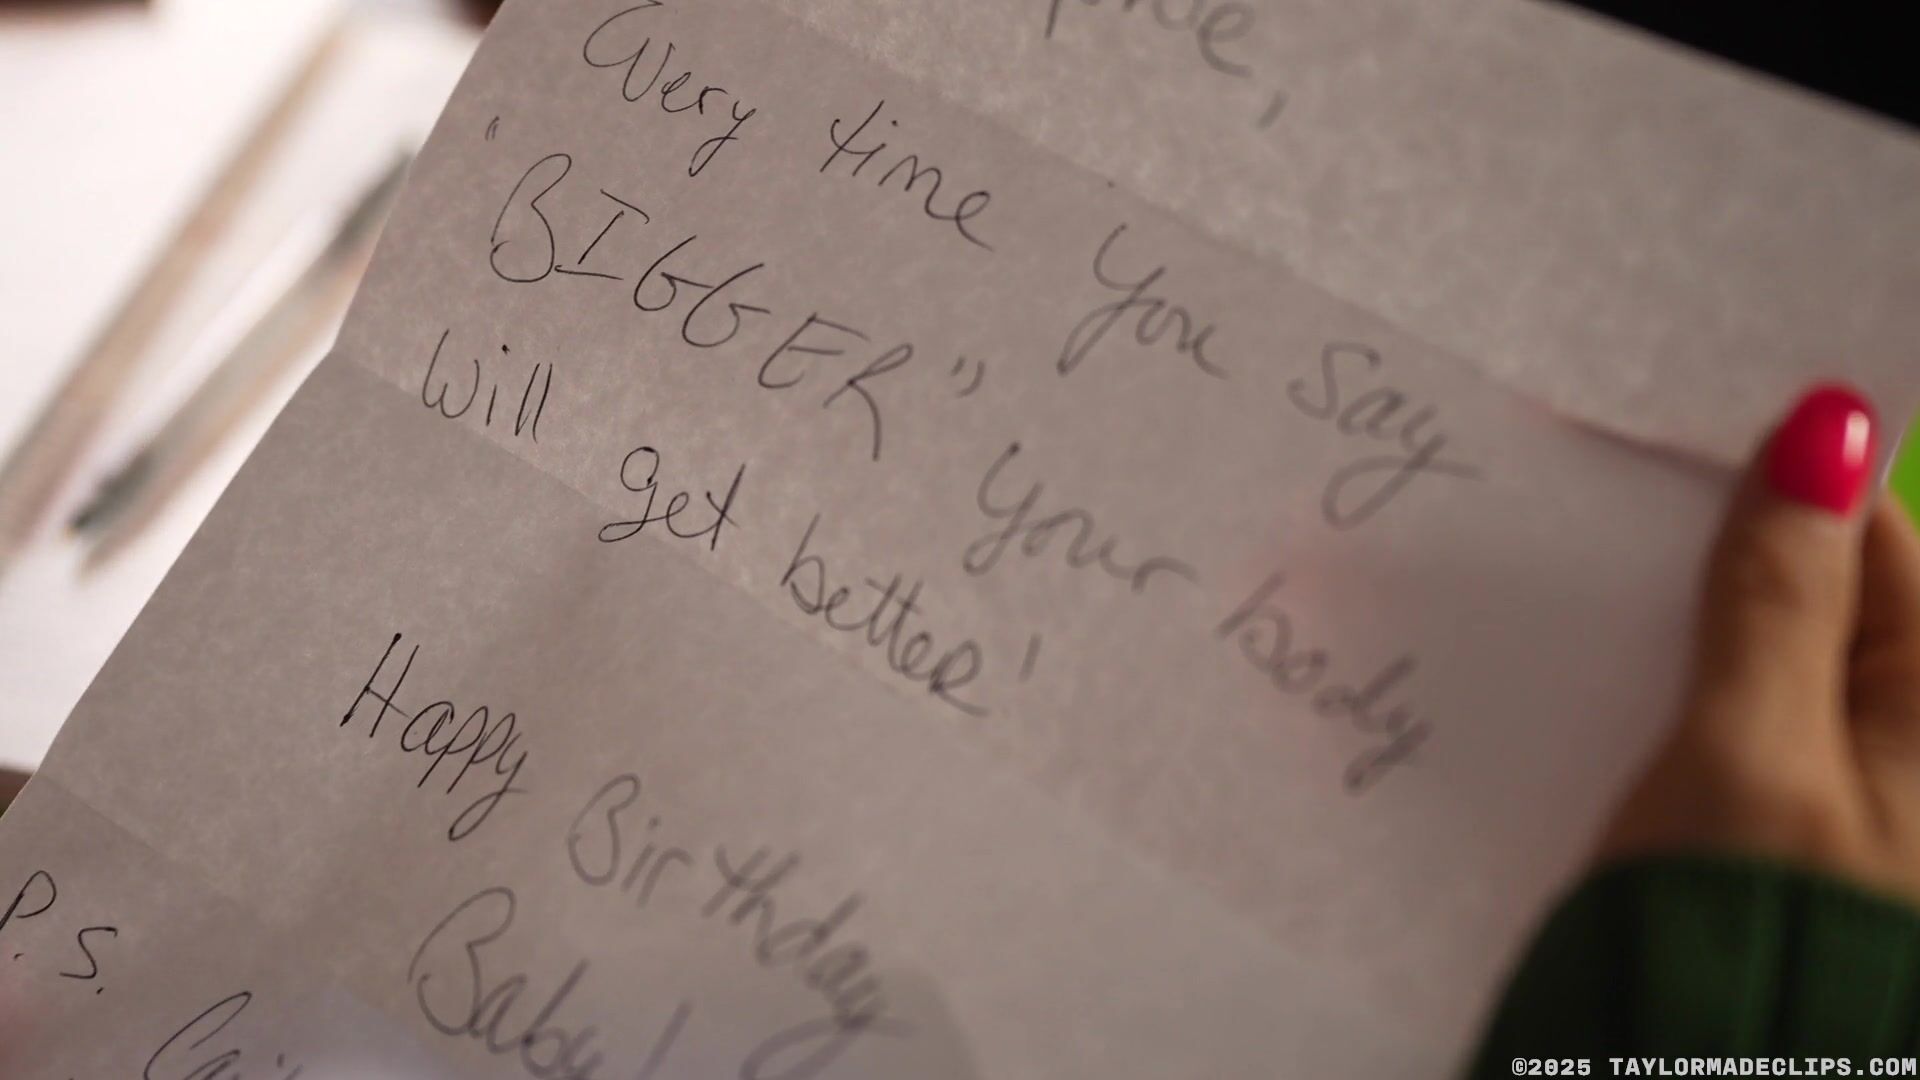 Every time you say
"BIGGER" your body
will get better!
Happy Birthday
Baby!
P.S.
©2025 TAYLORMADECLIPS.COM